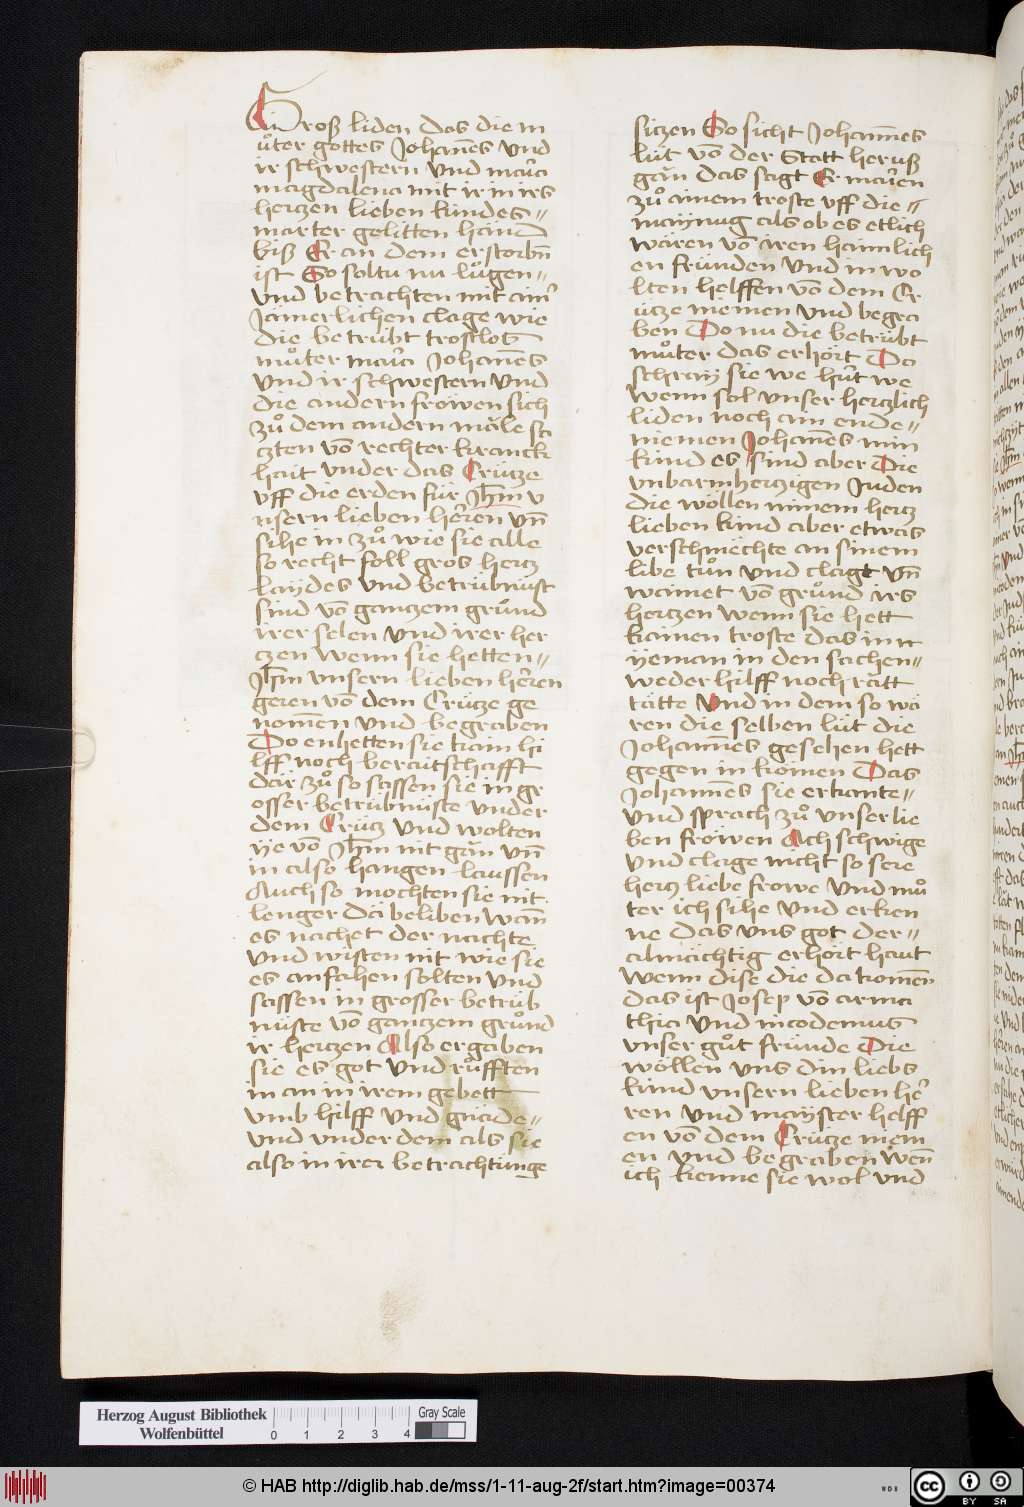 Groß liden das die m
uͦter gottes Johan̄es vnd
ir schwestern vnd mar̄a
magdalena mit ir in irs
hertzen lieben kindes
marter gelitten händ
biß Er an dem erstorbn̄
ist So soltu nu luͦgen
vnd betrachten mit aim̄
Jämerlichen clage wie
die betrübt trostlos
muͦter mar̄a Johan̄es
vnd ir schwestern vnd
die andern frowen sich
zuͦ dem andern mäle sa
czten vō rechter kranck
hait vnder das Crütze
vff die erden für Jhm̄ v
nsern lieben heren vn̄
sihe in zuͦ wie sie alle
so recht foll gros hertz
laydes vnd betrübnüst
sind vō gantzem gruͦnd
irer selen vnd irer her
czen wenn sie hetten
Jhm̄ vnsern lieben heren
geren vō dem Crütze ge
nomen vnd begraben
Do enhetten sie kain hi
lff noch beraitschafft
där zuͦ so sassen sie in gr
osser betrübnüste vnder
dem Crütz vnd wolten
ye vō Jhm̄ nit gän vn̄
in also hangen laussen
Auch so mochten sie nit
lenger dä beliben wan̄
es nachet der nachte
vnd wisten nit wie sie
es anfahen solten vnd
sassen in grosser betrüb
nüste vō gantzem gruͦnd
ir hertzen Also ergaben
sie es got vnd ruͦfften
in an in irem gebett
vmb hilff vnd gnäde
vnd vnder dem als sie
also in irer betrachtunge
sitzen So sicht Johannes
lüt vō der Statt heruß
gän das sagt Er mar̄en
zuͦ ainem troste vff die
maynug als ob es etlich
wären vō iren haimlich
en fründen vnd in wo
lten helffen vō dem Cr
ütze niemen vnd begra
ben Do nu die betrübt
muͦter das erhört Do
schray sie we hüt we
wenn sol vnser hertzlich
liden noch ain ende
niemen Johan̄es min
kind es sind aber Die
vnbarmhertzigen Juden
die wöllen minem hertz
lieben kind aber etwas
verschmechte an sinem
libe tuͦn vnd clagt vn̄
wainet vō gruͦnd irs
hertzen wenn sie hett
kainen troste das in n
yeman in den sachen
weder hilff noch rätt
tätte Vnd in dem so wä
ren die selben lüt die
Johannes gesehen hett
gegen in komen Das
Johannes sie erkante
vnd sprach zuͦ vnser lie
ben frowen Ach schwige
vnd clage nicht so sere
hertz liebe frowe vnd muͦ
ter ich sihe vnd erken
ne das vns got der
almächtig erhört haut
wenn dise die da komen̄
das ist Josep vō arma
thia vnd nicodemus
vnser guͦt fründe Die
wöllen vns din liebs
kind vnsern lieben her̄
ren vnd mayster helff
en vō dem Crütze niem
en vnd begraben wen̄
ich kenne sie wol vnd
Herzog August Bibliothek
Wolfenbüttel
0 1 2 3 4
Gray Scale
© HAB http://diglib.hab.de/mss/1-11-aug-2f/start.htm?image=00374
WDB
CC BY SA